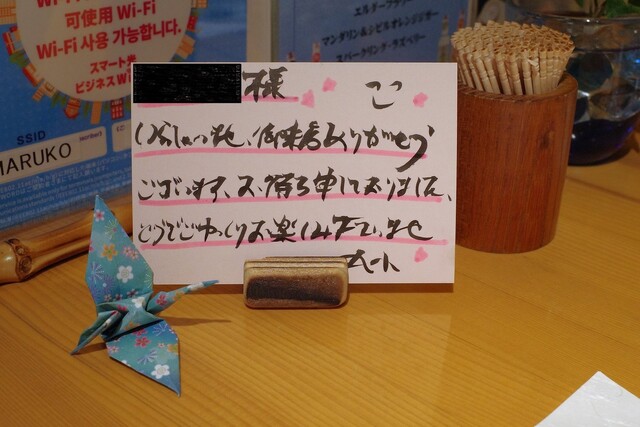 可使用 Wi-Fi
Wi-Fi 사용 가능합니다.
スマート光
ビジネスWi
SSID
MARUKO
エルダーフラワー
マンダリン&シビルオレンジジャー
スパークリング・ラズベリー
様
いらっしゃいませ、御来店ありがとう
ございます、お待ち申しておりました、
どうぞごゆっくりお楽しみ下さいませ